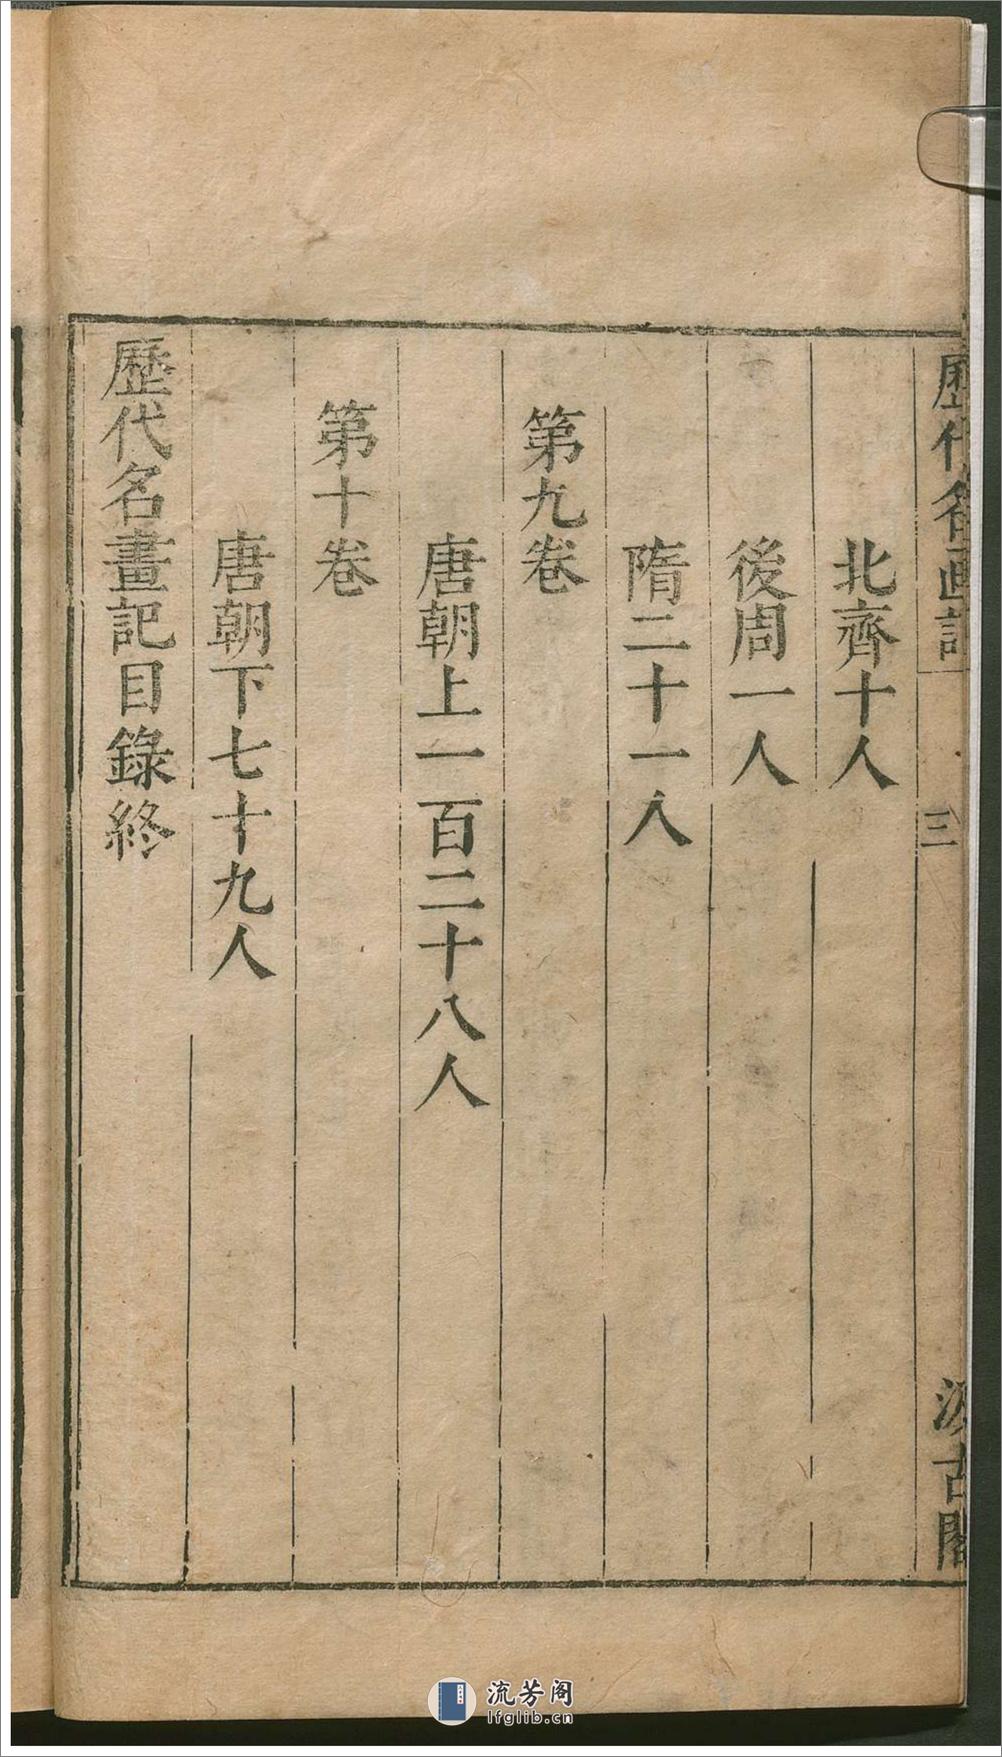 歷代名画記
三
汲古閣
北齊十人
後周一人
隋二十一人
第九卷
唐朝上一百二十八人
第十卷
唐朝下七十九人
歷代名畫記目錄終
流芳阁
lfglib.cn